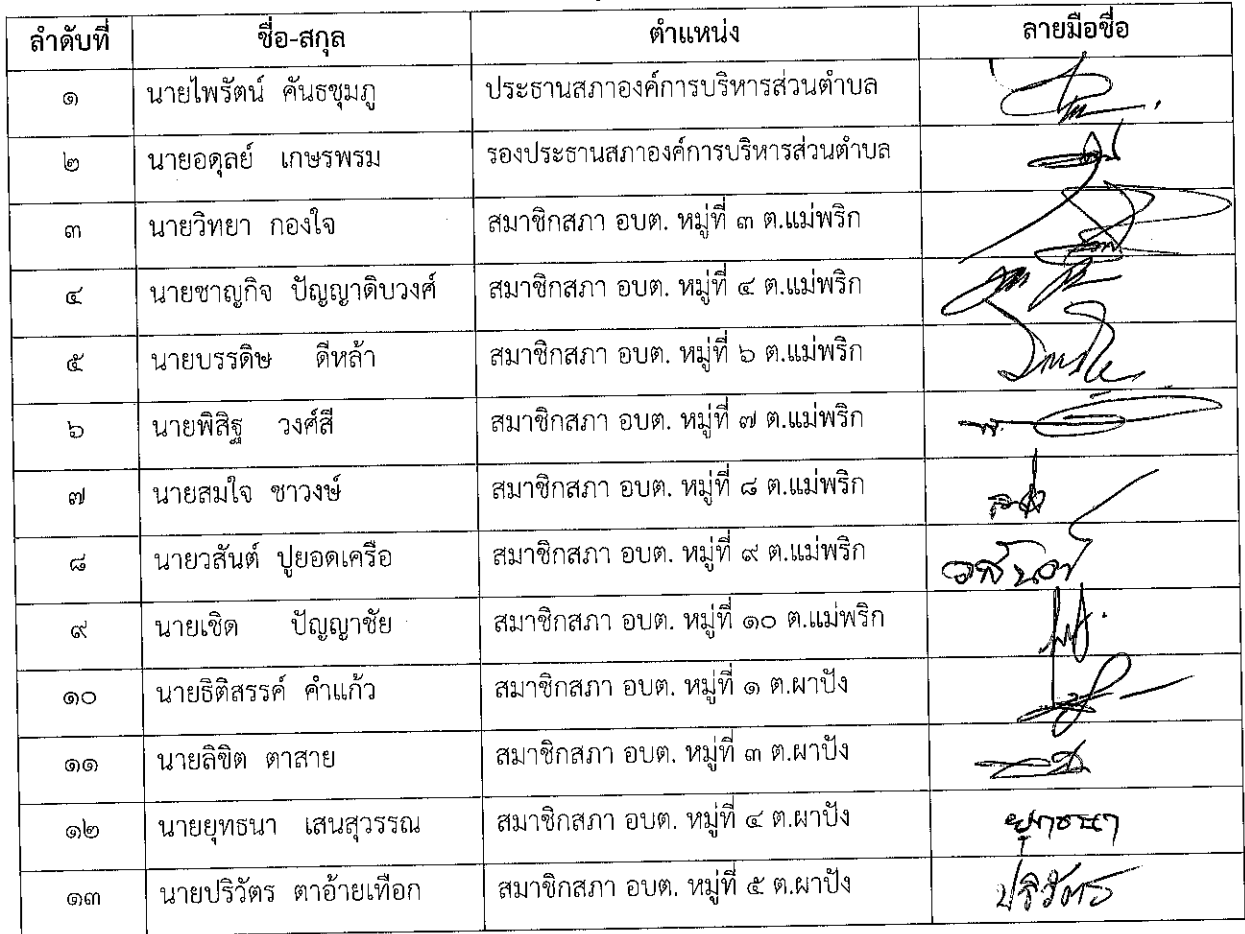 ลำดับที่ ชื่อ-สกุล ตำแหน่ง ลายมือชื่อ
๑ นายไพรัตน์ คันธชุมภู ประธานสภาองค์การบริหารส่วนตำบล
๒ นายอดุลย์ เกษรพรม รองประธานสภาองค์การบริหารส่วนตำบล
๓ นายวิทยา กองใจ สมาชิกสภา อบต. หมู่ที่ ๓ ต.แม่พริก
๔ นายชาญกิจ ปัญญาดิบวงศ์ สมาชิกสภา อบต. หมู่ที่ ๔ ต.แม่พริก
๕ นายบรรดิษ ดีหล้า สมาชิกสภา อบต. หมู่ที่ ๖ ต.แม่พริก
๖ นายพิสิฐ วงศ์สี สมาชิกสภา อบต. หมู่ที่ ๗ ต.แม่พริก
๗ นายสมใจ ชาวงษ์ สมาชิกสภา อบต. หมู่ที่ ๘ ต.แม่พริก
๘ นายวสันต์ ปูยอดเครือ สมาชิกสภา อบต. หมู่ที่ ๙ ต.แม่พริก วสันต์
๙ นายเชิด ปัญญาชัย สมาชิกสภา อบต. หมู่ที่ ๑๐ ต.แม่พริก
๑๐ นายธิติสรรค์ คำแก้ว สมาชิกสภา อบต. หมู่ที่ ๑ ต.ผาปัง
๑๑ นายลิขิต ตาสาย สมาชิกสภา อบต. หมู่ที่ ๓ ต.ผาปัง
๑๒ นายยุทธนา เสนสุวรรณ สมาชิกสภา อบต. หมู่ที่ ๔ ต.ผาปัง ยุทธนา
๑๓ นายปริวัตร ตาอ้ายเทือก สมาชิกสภา อบต. หมู่ที่ ๕ ต.ผาปัง ปริวัตร